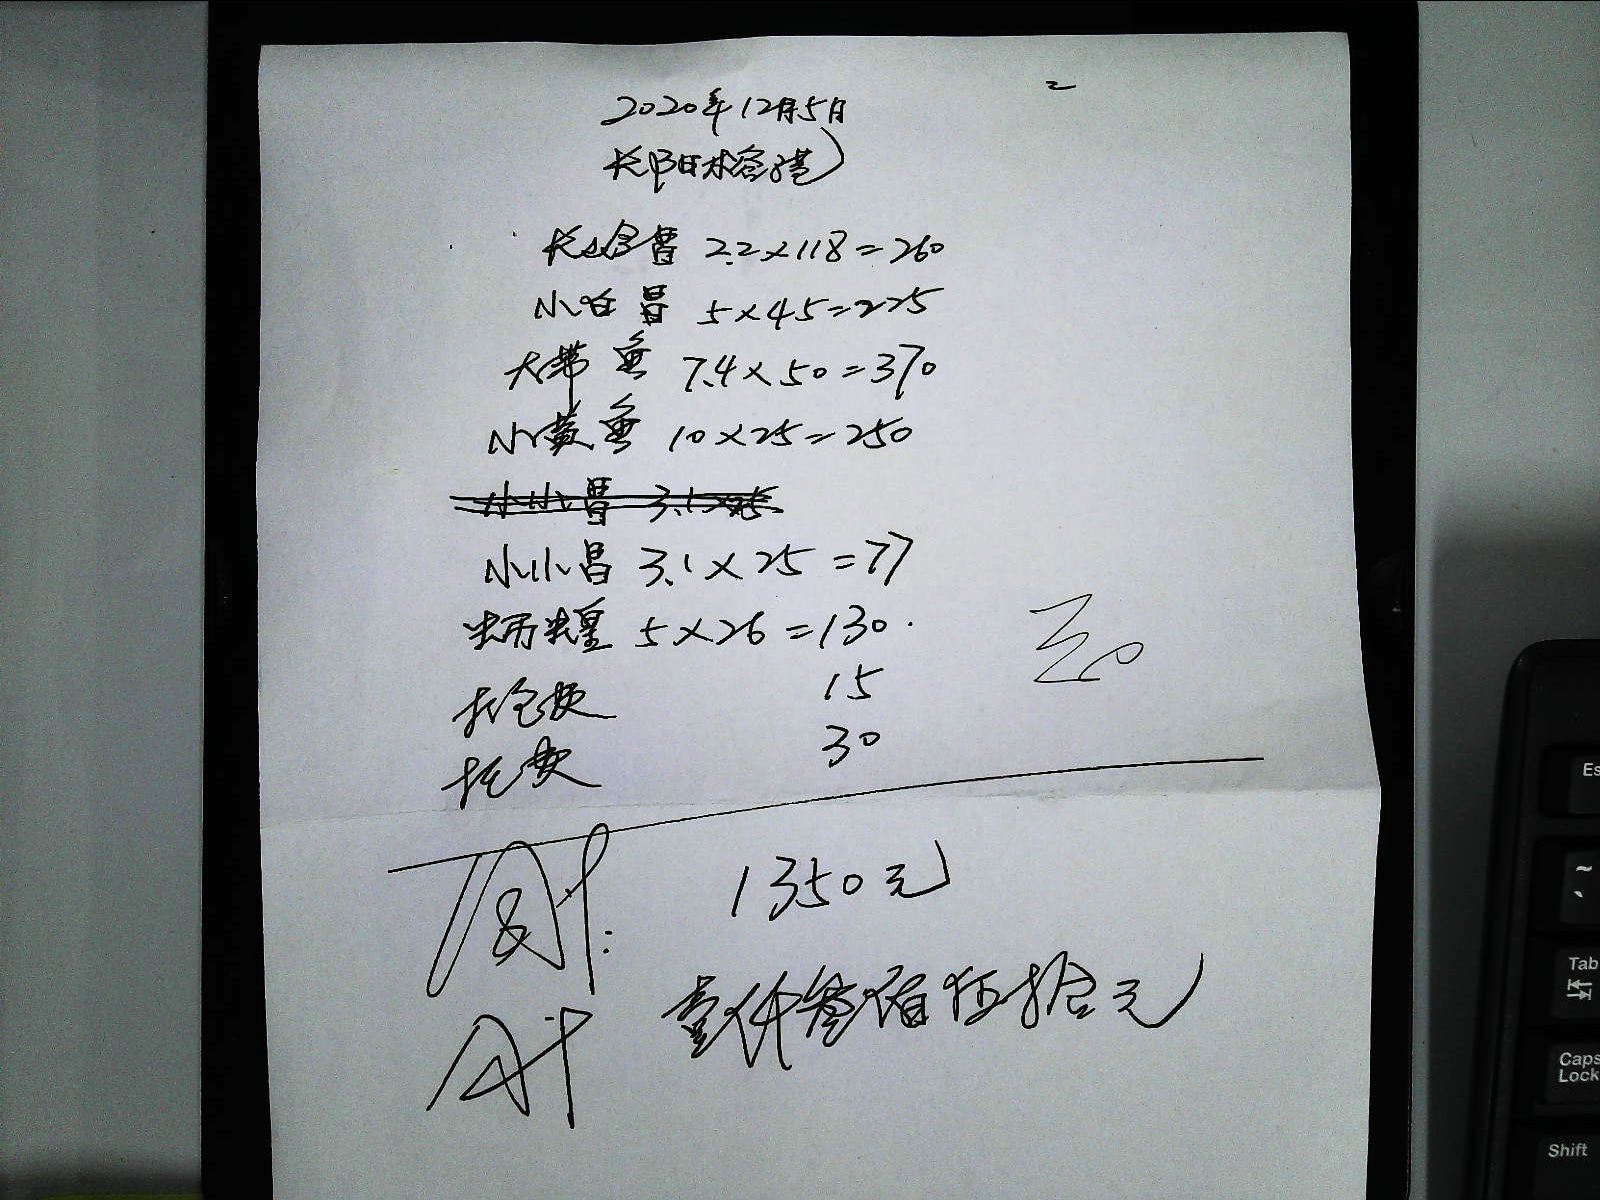 2020年12月5日
2.2×118=260
小白昌 5×45=225
大带鱼 7.4×50=370
小黄鱼 10×25=250
小小昌 3.1×25
小小昌 3.1×25=77
5×26=130
打包费 15
托费 30
1350元
共:
壹仟叁佰伍拾元
Es
~
、
Tab
Caps
Lock
Shift